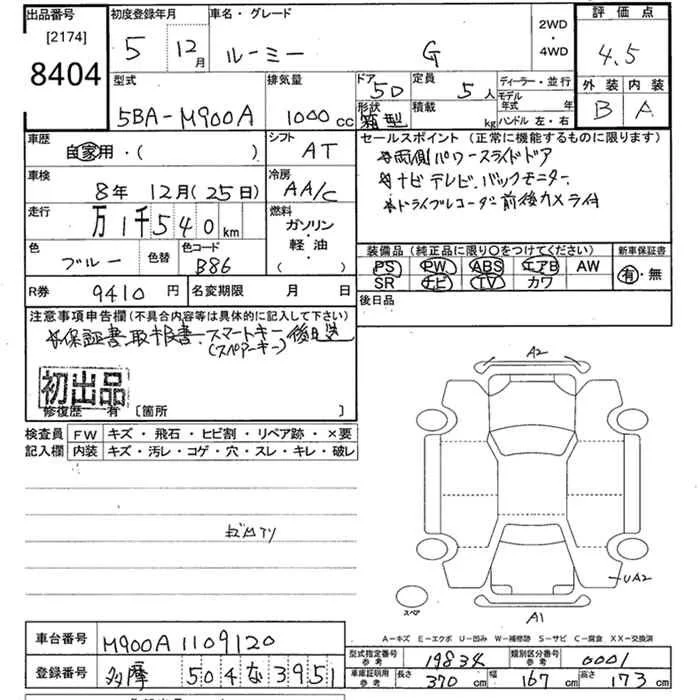 出品番号
[2174]
8404
初度登録年月
5 12月
車名・グレード
ルーミー G
2WD
・
4WD
評価点
4.5
外装 内装
B A
型式
5BA-M900A
排気量
1000cc
ドア 5D
形状 箱型
定員 5人
積載 kg
ディーラー・並行
モデル年式 年
ハンドル 左・右
車歴
自家用・( )
シフト
AT
車検
8年 12月(25日)
冷房
AA/C
走行
万1千540km
燃料
ガソリン・軽・油
( )
色
ブルー
色替
色コード
B86
R券 9410円
名変期限 月 日
セールスポイント(正常に機能するものに限ります)
☆両側パワースライドドア
☆ナビテレビ、バックモニター
☆ドライブレコーダ前後カメラ付
装備品(純正品に限り〇をつけてください)
PS PW ABS エアB AW
SR ナビ TV カワ
新車保証書
有・無
後日品
注意事項申告欄(不具合内容等は具体的に記入して下さい)
☆保証書、取扱書、スマートキー(スペアーキー)後日送
初出品
修復歴 有 〔箇所 〕
検査員記入欄
FW キズ・飛石・ヒビ割・リペア跡・×要
内装 キズ・汚レ・コゲ・穴・スレ・キレ・破レ
A2
UA2
スペア
A1
A-キズ E-エクボ U-凹み W-補修跡 S-サビ C-腐食 XX-交換済
車台番号 M900A 1109120
登録番号 多摩 504 な 3951
型式指定番号 参考 19834
類別区分番号 参考 0001
車庫証明用 参考 長さ 370cm 幅 167cm 高さ 173cm